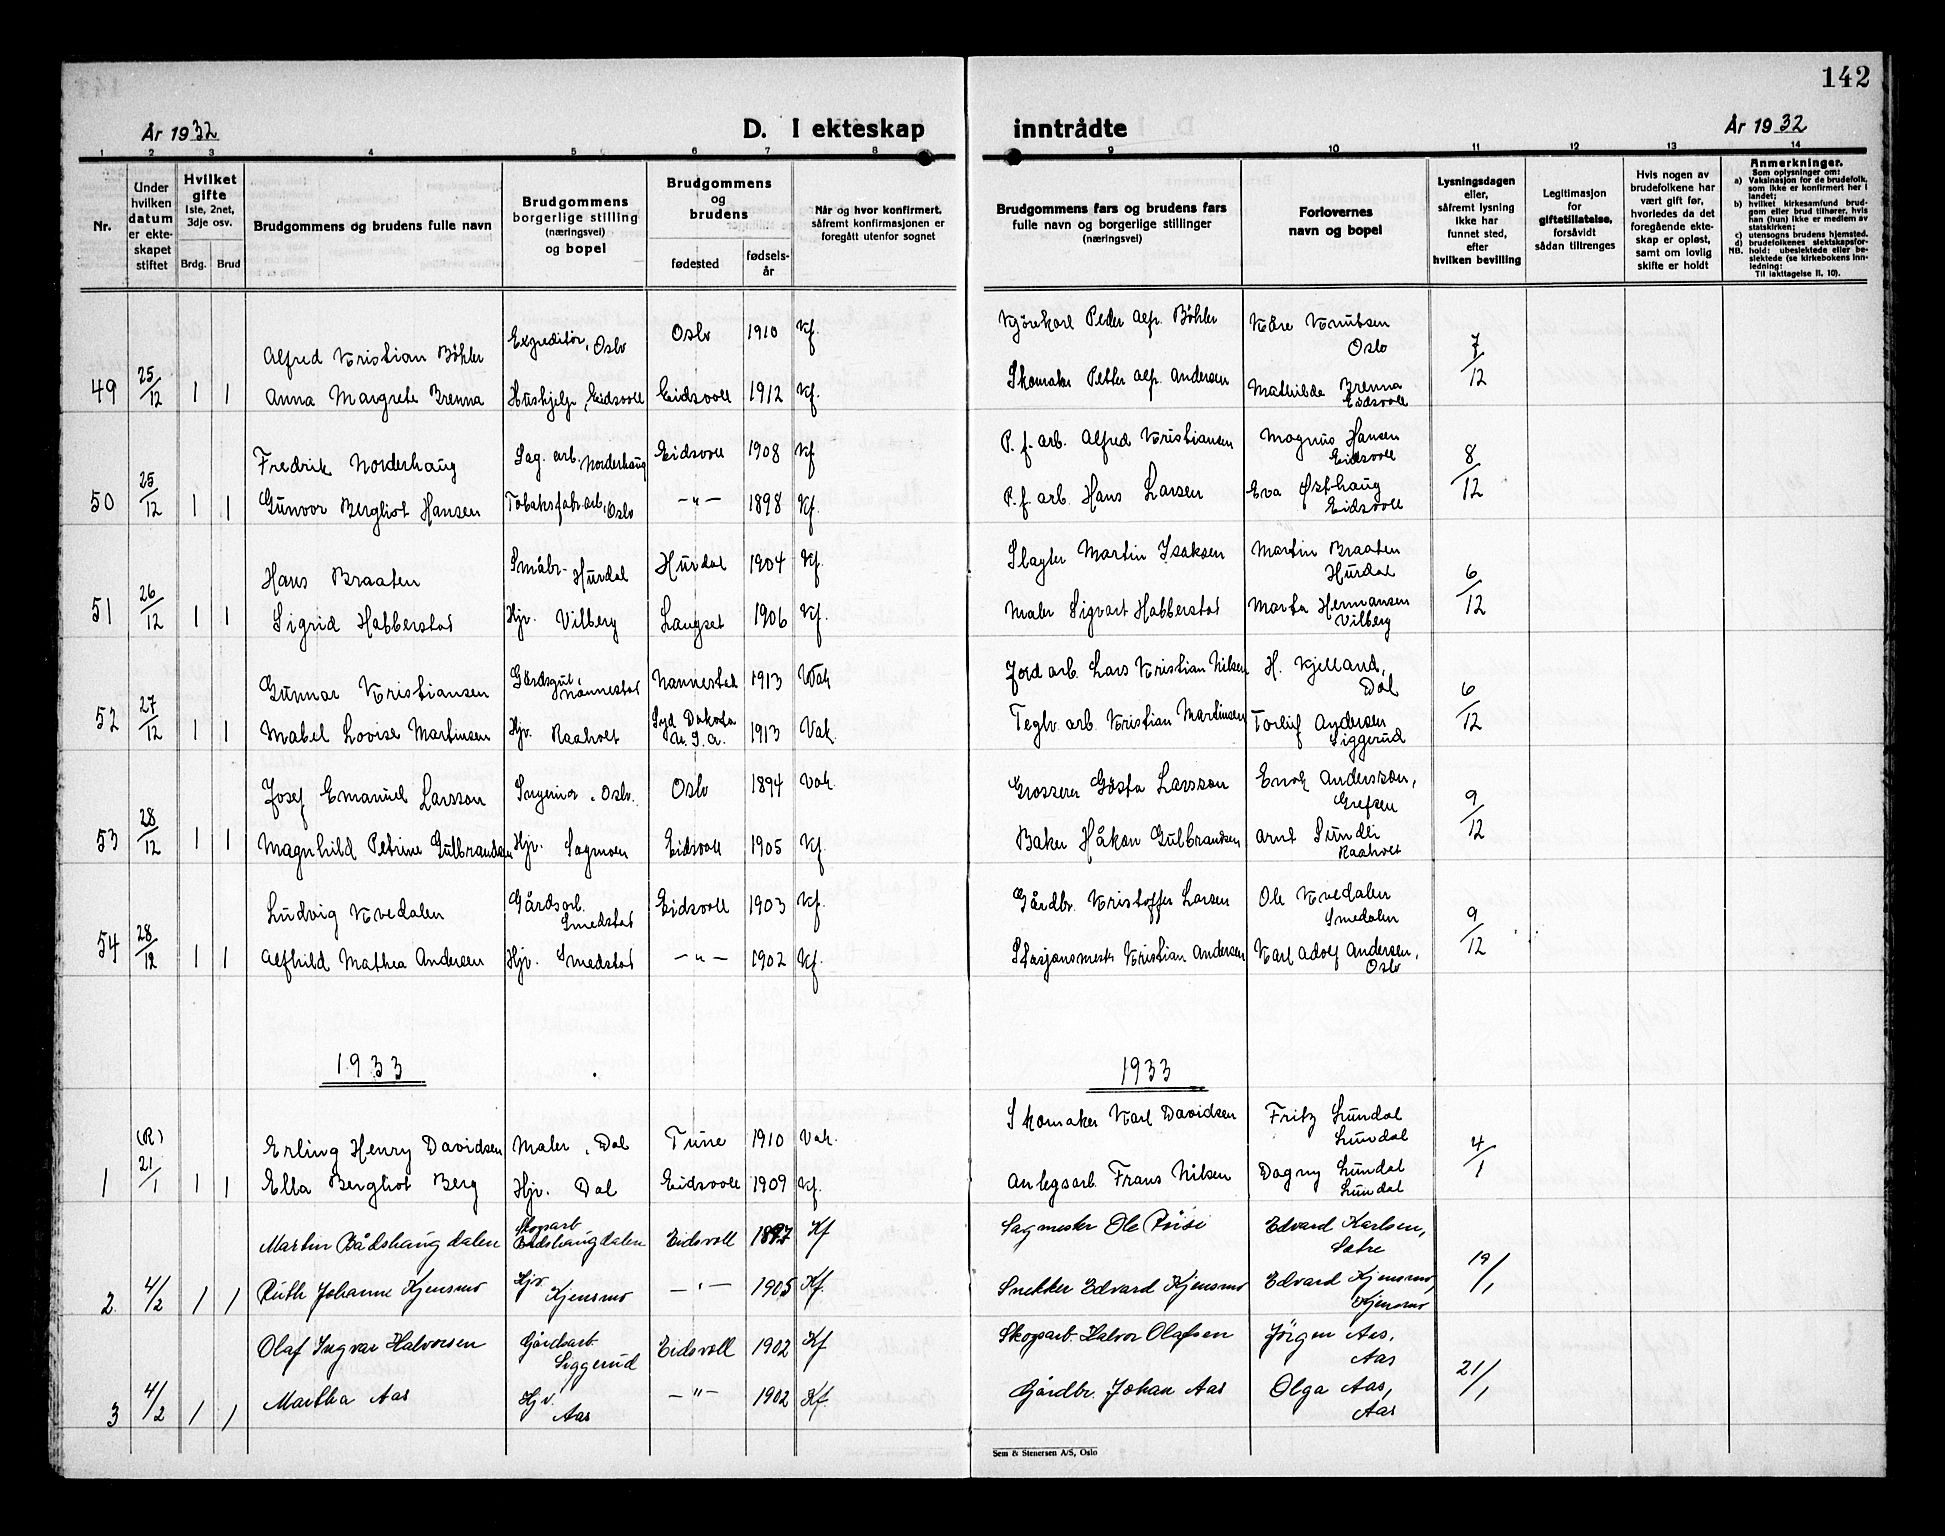 142
År 1932
D. I ekteskap inntrådte
År 1932
1 2 3 4 5 6 7 8 9 10 11 12 13 14
Nr.
Under hvilken datum er ekteskapet stiftet
Hvilket gifte
Iste, 2net, 3dje osv.
Brdg. Brud
Brudgommens og brudens fulle navn
Brudgommens og brudens borgerlige stilling (næringsvei) og bopel
Brudgommens og brudens
fødested
fødselsår
Når og hvor konfirmert, såfremt konfirmasjonen er foregått utenfor sognet
Brudgommens fars og brudens fars fulle navn og borgerlige stillinger (næringsvei)
Forlovernes navn og bopel
Lysningsdagen eller, såfremt lysning ikke har funnet sted, efter hvilken bevilling
Legitimasjon for giftetillatelse, forsåvidt sådan tiltrenges
Hvis nogen av brudefolkene har vært gift før, hvorledes da det foregående ekteskap er opløst, samt om lovlig skifte er holdt
Anmerkninger.
Som oplysninger om:
a) Vaksinasjon for de brudefolk, som ikke er konfirmert her i landet;
b) hvilket kirkesamfund brudgom eller brud tilhører, hvis han (hun) ikke er medlem av statskirken;
c) utensogns brudens hjemsted.
d) brudefolkenes slektskapsforhold: ubeslektede eller beslektede (se kirkebokens Innledning:
NB. Til iakttagelse II, 10).
Alfred Kristian Böhler Expeditör, Oslo Oslo 1910 Kf. Kjörekarl Peder Alf. Böhler Kåre Knutsen Oslo
49 25/12 1 1 Anna Margrete Brenna Hushjelp, Eidsvoll Eidsvoll 1912 Kf. Skomaker Petter Alf. Andersen Mathilde Brenna Eidsvoll 7/12
Fredrik Norderhaug Sag. arb. Norderhaug Eidsvoll 1908 Kf. P. f. arb. Alfred Kristiansen Magnus Hansen Eidsvoll
50 25/12 1 1 Gunvor Bergliot Hansen Tobaksfabr.arb., Oslo —"— 1898 Kf. P. f. arb. Hans Larsen Eva Østhaug Eidsvoll 8/12
Hans Braaten Småbr. Hurdal Hurdal 1904 Kf. Slagter Martin Isaksen Martin Braaten Hurdal
51 26/12 1 1 Sigrid Habberstad Hjv. Vilberg Langset 1906 Kf. Maler Sigvart Habberstad Marta Hermansen Vilberg 6/12
Gunnar Kristiansen Gårdsgut, Nannestad Nannestad 1913 Vak Jord arb. Lars Kristian Nilsen H. Kjelland, Dal
52 27/12 1 1 Mabel Lovise Martinsen Hjv. Raaholt Syd Dakota U.S.A. 1913 Vak. Teglv. arb. Kristian Martinsen Torleif Andersen Siggerud 6/12
Josef Emanuel Larsson Ingeniør, Oslo. Oslo 1894 Vak. Grosserer Gösta Larsson Enok Andersson, Grefsen
53 28/12 1 1 Magnhild Petrine Gulbrandsen Hjv. Sagmoen Eidsvoll 1905 Kf. Baker Håkon Gulbrandsen Arnt Sundli Raaholt 9/12
Ludvig Kvedalen Gårdsarb. Smedstad Eidsvoll 1903 Kf. Gårdbr. Kristoffer Larsen Ole Kvedalen Smedalen
54 28/12 1 1 Alfhild Mathea Andersen Hjv. Smedstad —"— 1902 Kf. Stasjonsmestr. Kristian Andersen Karl Adolf Andersen, Oslo 9/12
1933 1933
(R) Erling Henry Davidsen Maler, Dal Tune 1910 Vak. Skomaker Karl Davidsen Fritz Lundal Lundal
1 21/1 1 1 Ella Bergliot Berg Hjv. Dal Eidsvoll 1909 Kf. Anlegsarb. Frans Nilsen Dagny Lundal Lundal 4/1
Martin Bådshaugdalen Skogsarb. Bådshaugdalen Eidsvoll 1897 Kf Sagmester Ole Edvard Karlsen, Sætre
2. 4/2 1 1 Ruth Johanne Kjensmo Hjv. Kjensmo —"— 1905 Kf. Snekker Edvard Kjensmo Edvard Kjensmo, Kjensmo 19/1
Olaf Ingvar Halvorsen Gårdsarb. Siggerud Eidsvoll 1902 Kf Skogsarb. Halvor Olafsen Jörgen Aas, Aas
3 4/2 1 1 Martha Aas Hjv. Aas —"— 1902 Kf. Gårdbr. Johan Aas Olga Aas, Aas 21/1
Sem & Stenersen A/S, Oslo